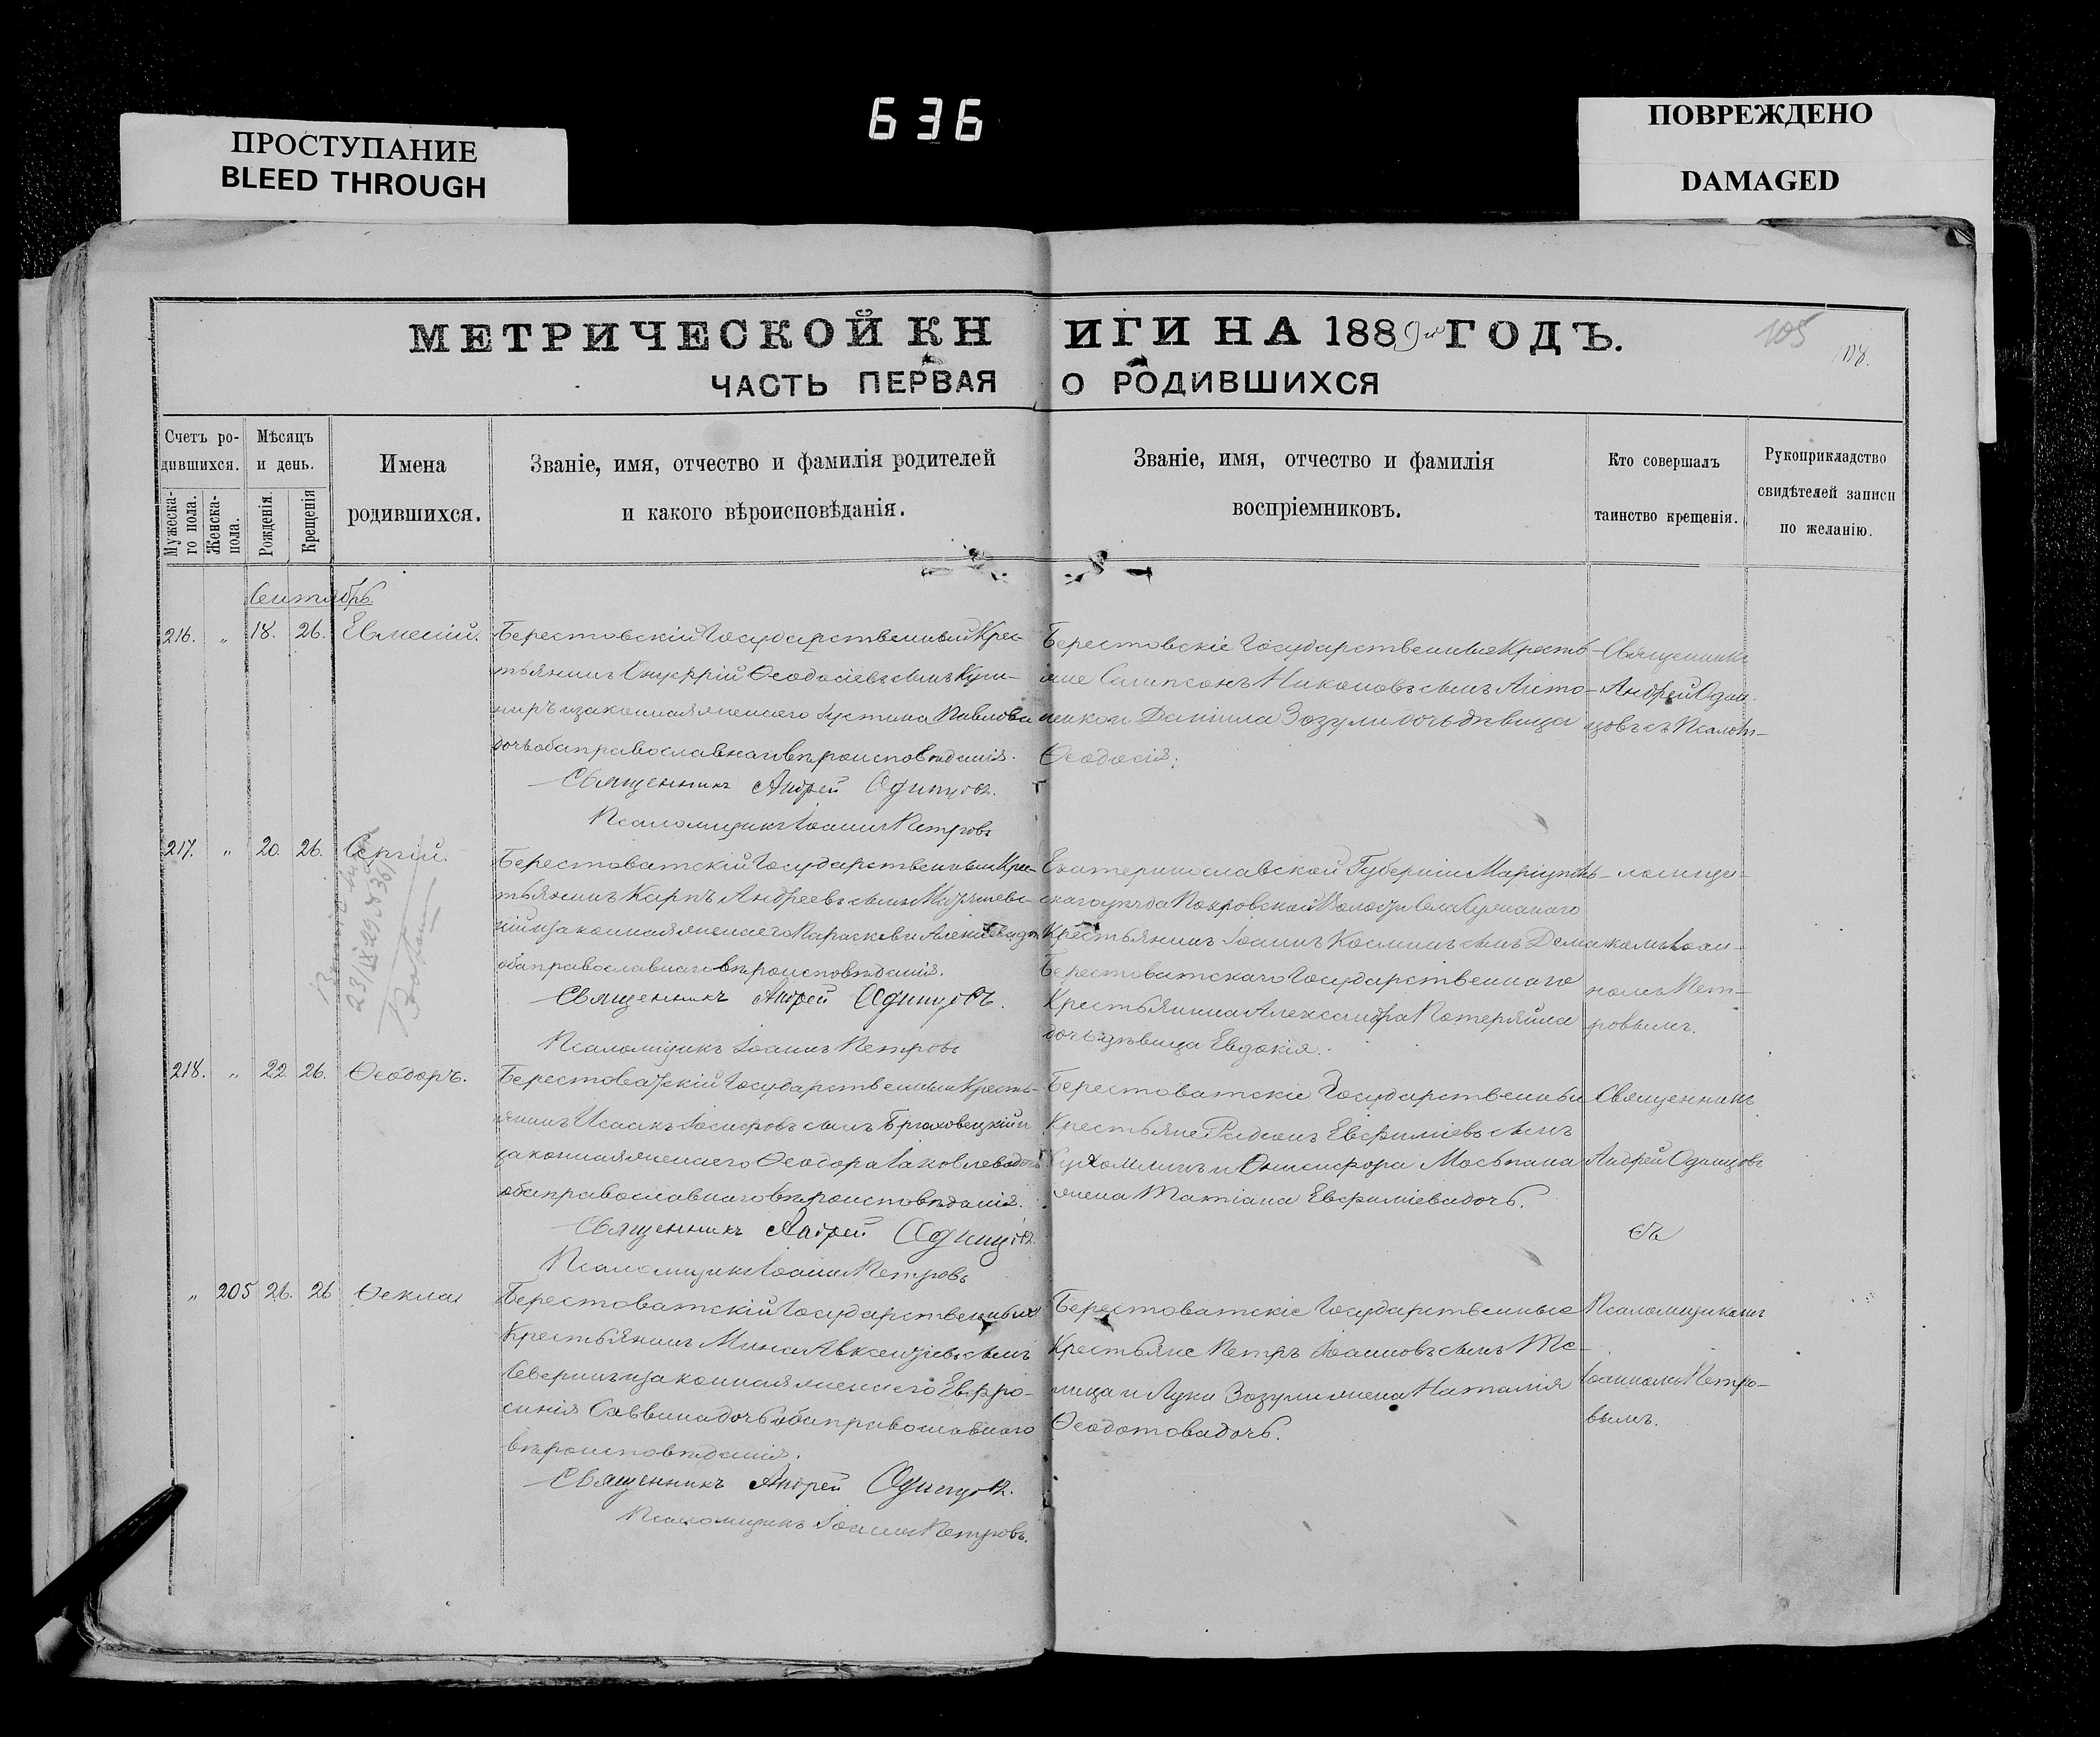 636
ПРОСТУПАНИЕ
BLEED THROUGH
ПОВРЕЖДЕНО
DAMAGED
МЕТРИЧЕСКОЙ КНИГИ НА 1889й ГОДЪ.
105
ЧАСТЬ ПЕРВАЯ О РОДИВШИХСЯ
Счетъ ро-
дившихся.
Мужеска-
го пола.
Женска-
пола.
Мѣсяцъ
и день.
Рожденія.
Крещенія
Имена
родившихся.
Званіе, имя, отчество и фамилія родителей
и какого вѣроисповѣданія.
Званіе, имя, отчество и фамилія
воспріемниковъ.
Кто совершалъ
таинство крещенія.
Рукоприкладство
свидѣтелей записи
по желанію.
Сентябрь.
216. " 18. 26. Евмений.
Берестовскій Государственный Крес-
тьянинъ Онуфрій Ѳеодосіевъ сынъ Куш-
ниръ и законная жена его Іустина Павлова
дочь оба православнаго вѣроисповѣданія.
Священникъ Андрей Одинцовъ.
Псаломщикъ Іоаннъ Петровъ
Берестовскіе Государственные Кресть-
яне Сампсонъ Никоновъ сынъ
и Даніила Зозули дочь дѣвица
Ѳеодосія.
Священникъ
Андрей Один-
цовъ съ Псалом-
217. " 20. 26. Сергій.
23/IX 29
Берестоватскій Государственный Крес-
тьянинъ Карпъ Андреевъ сынъ
и законная жена его Параскева
оба православнаго вѣроисповѣданія.
Священникъ Андрей Одинцовъ.
Псаломщикъ Іоаннъ Петровъ
Екатеринославской Губерніи Маріуполь-
скаго уѣзда Покровской Волости села
Крестьянинъ Іоаннъ Космин сынъ
Берестоватскаго Государственнаго
Крестьянина Александра Потеряйла
дочь дѣвица Евдокія.
щи-
комъ Іоан-
номъ Пет-
ровымъ.
218. " 22. 26. Ѳеодоръ.
Берестоватскій Государственный Кресть-
янинъ Исаакъ Іосифовъ сынъ Бряховецкій и
законная жена его Ѳеодора Іаковлева дочь
оба православнаго вѣроисповѣданія.
Священникъ Андрей Одинцовъ.
Псаломщикъ Іоаннъ Петровъ
Берестоватскіе Государственные
Крестьяне Родіонъ Евфиміевъ сынъ
Сухомлинъ и Онисифора Мосьпана
жена Татіана Евфиміева дочь.
Священникъ
Андрей Одинцовъ
съ
" 205 26. 26 Ѳекла
Берестоватскій Государственный
Крестьянинъ Мина Авксентіевъ сынъ
Севериг и законная жена его Евфро-
синія Саввина дочь оба православнаго
вѣроисповѣданія.
Священникъ Андрей Одинцовъ.
Псаломщикъ Іоаннъ Петровъ.
Берестоватскіе Государственные
Крестьяне Петръ Іоанновъ сынъ Те-
лица и Луки Зозули жена Наталія
Ѳеодотова дочь.
Псаломщикомъ
Іоанномъ Петро-
вымъ.